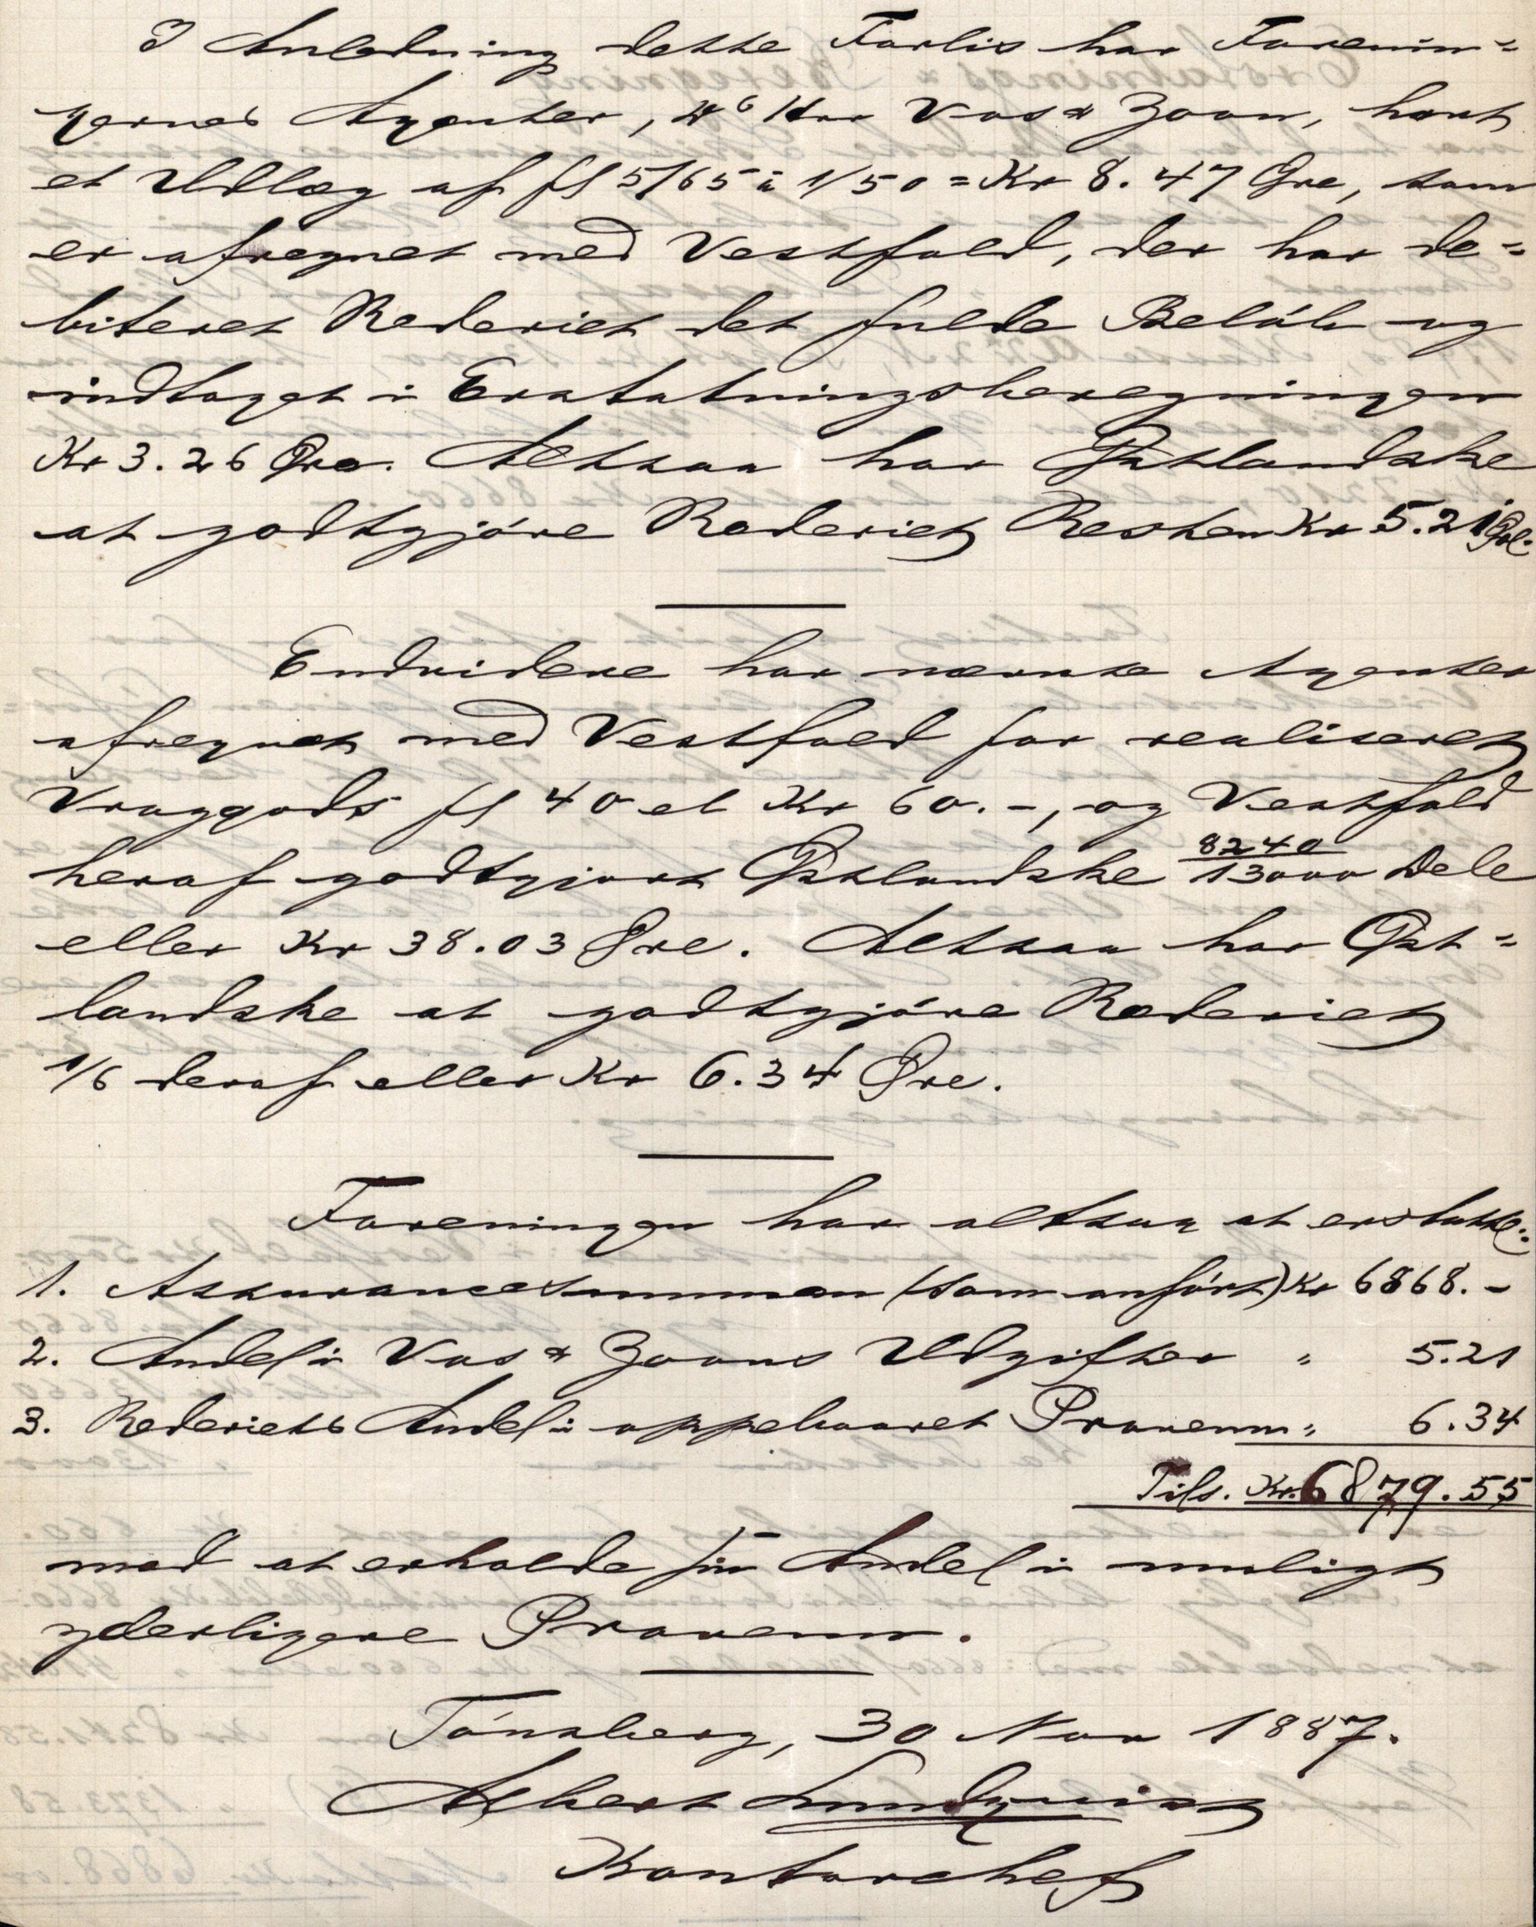 I Anledning dette Forlis har Forenin=
gernes Agenter, DHrr Vos & Zoon, havt
et Udlæg af fl 5/65 à 1/50 = Kr 8.47 Øre, som
er afregnet med Vestfold, der har de=
biteret Rederiet det fulde Beløb og
indtaget i Erstatningsberegningen
Kr 3.26 Øre. Altsaa har Østlandske
at godtgjøre Rederiet Resten Kr 5.21 Øre.
Endvidere har nævnte Agenter
afregnet med Vestfold for realiseret
Vraggods fl 40 el Kr 60.-, og Vestfold
heraf godtgjort Østlandske 8240/13000 Dele
eller Kr 38.03 Øre. Altsaa har Øst=
landske at godtgjøre Rederiet
1/6 deraf eller Kr 6.34 Øre.
Foreningen har altsaa at erstatte:
1. Assurancesummen (som anført) Kr 6868.-
2. Andel i Vos & Zoons Udgifter " 5.21
3. Rederiets Andel i oppebaaret Provenu " 6.34
Tils. Kr. 6879.55
mod at erholde sin Andel i muligt
yderligere Provenu.
Tønsberg, 30 Nov 1887.
Albert Lundquist
Kontorchef